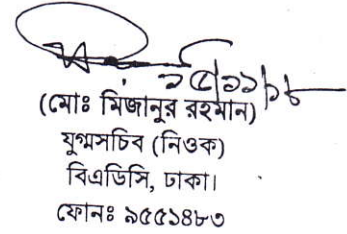 ১৫/১১/১৮
(মোঃ মিজানুর রহমান)
যুগ্মসচিব (নিওক)
বিএডিসি, ঢাকা।
ফোনঃ ৯৫৫১৪৮৩